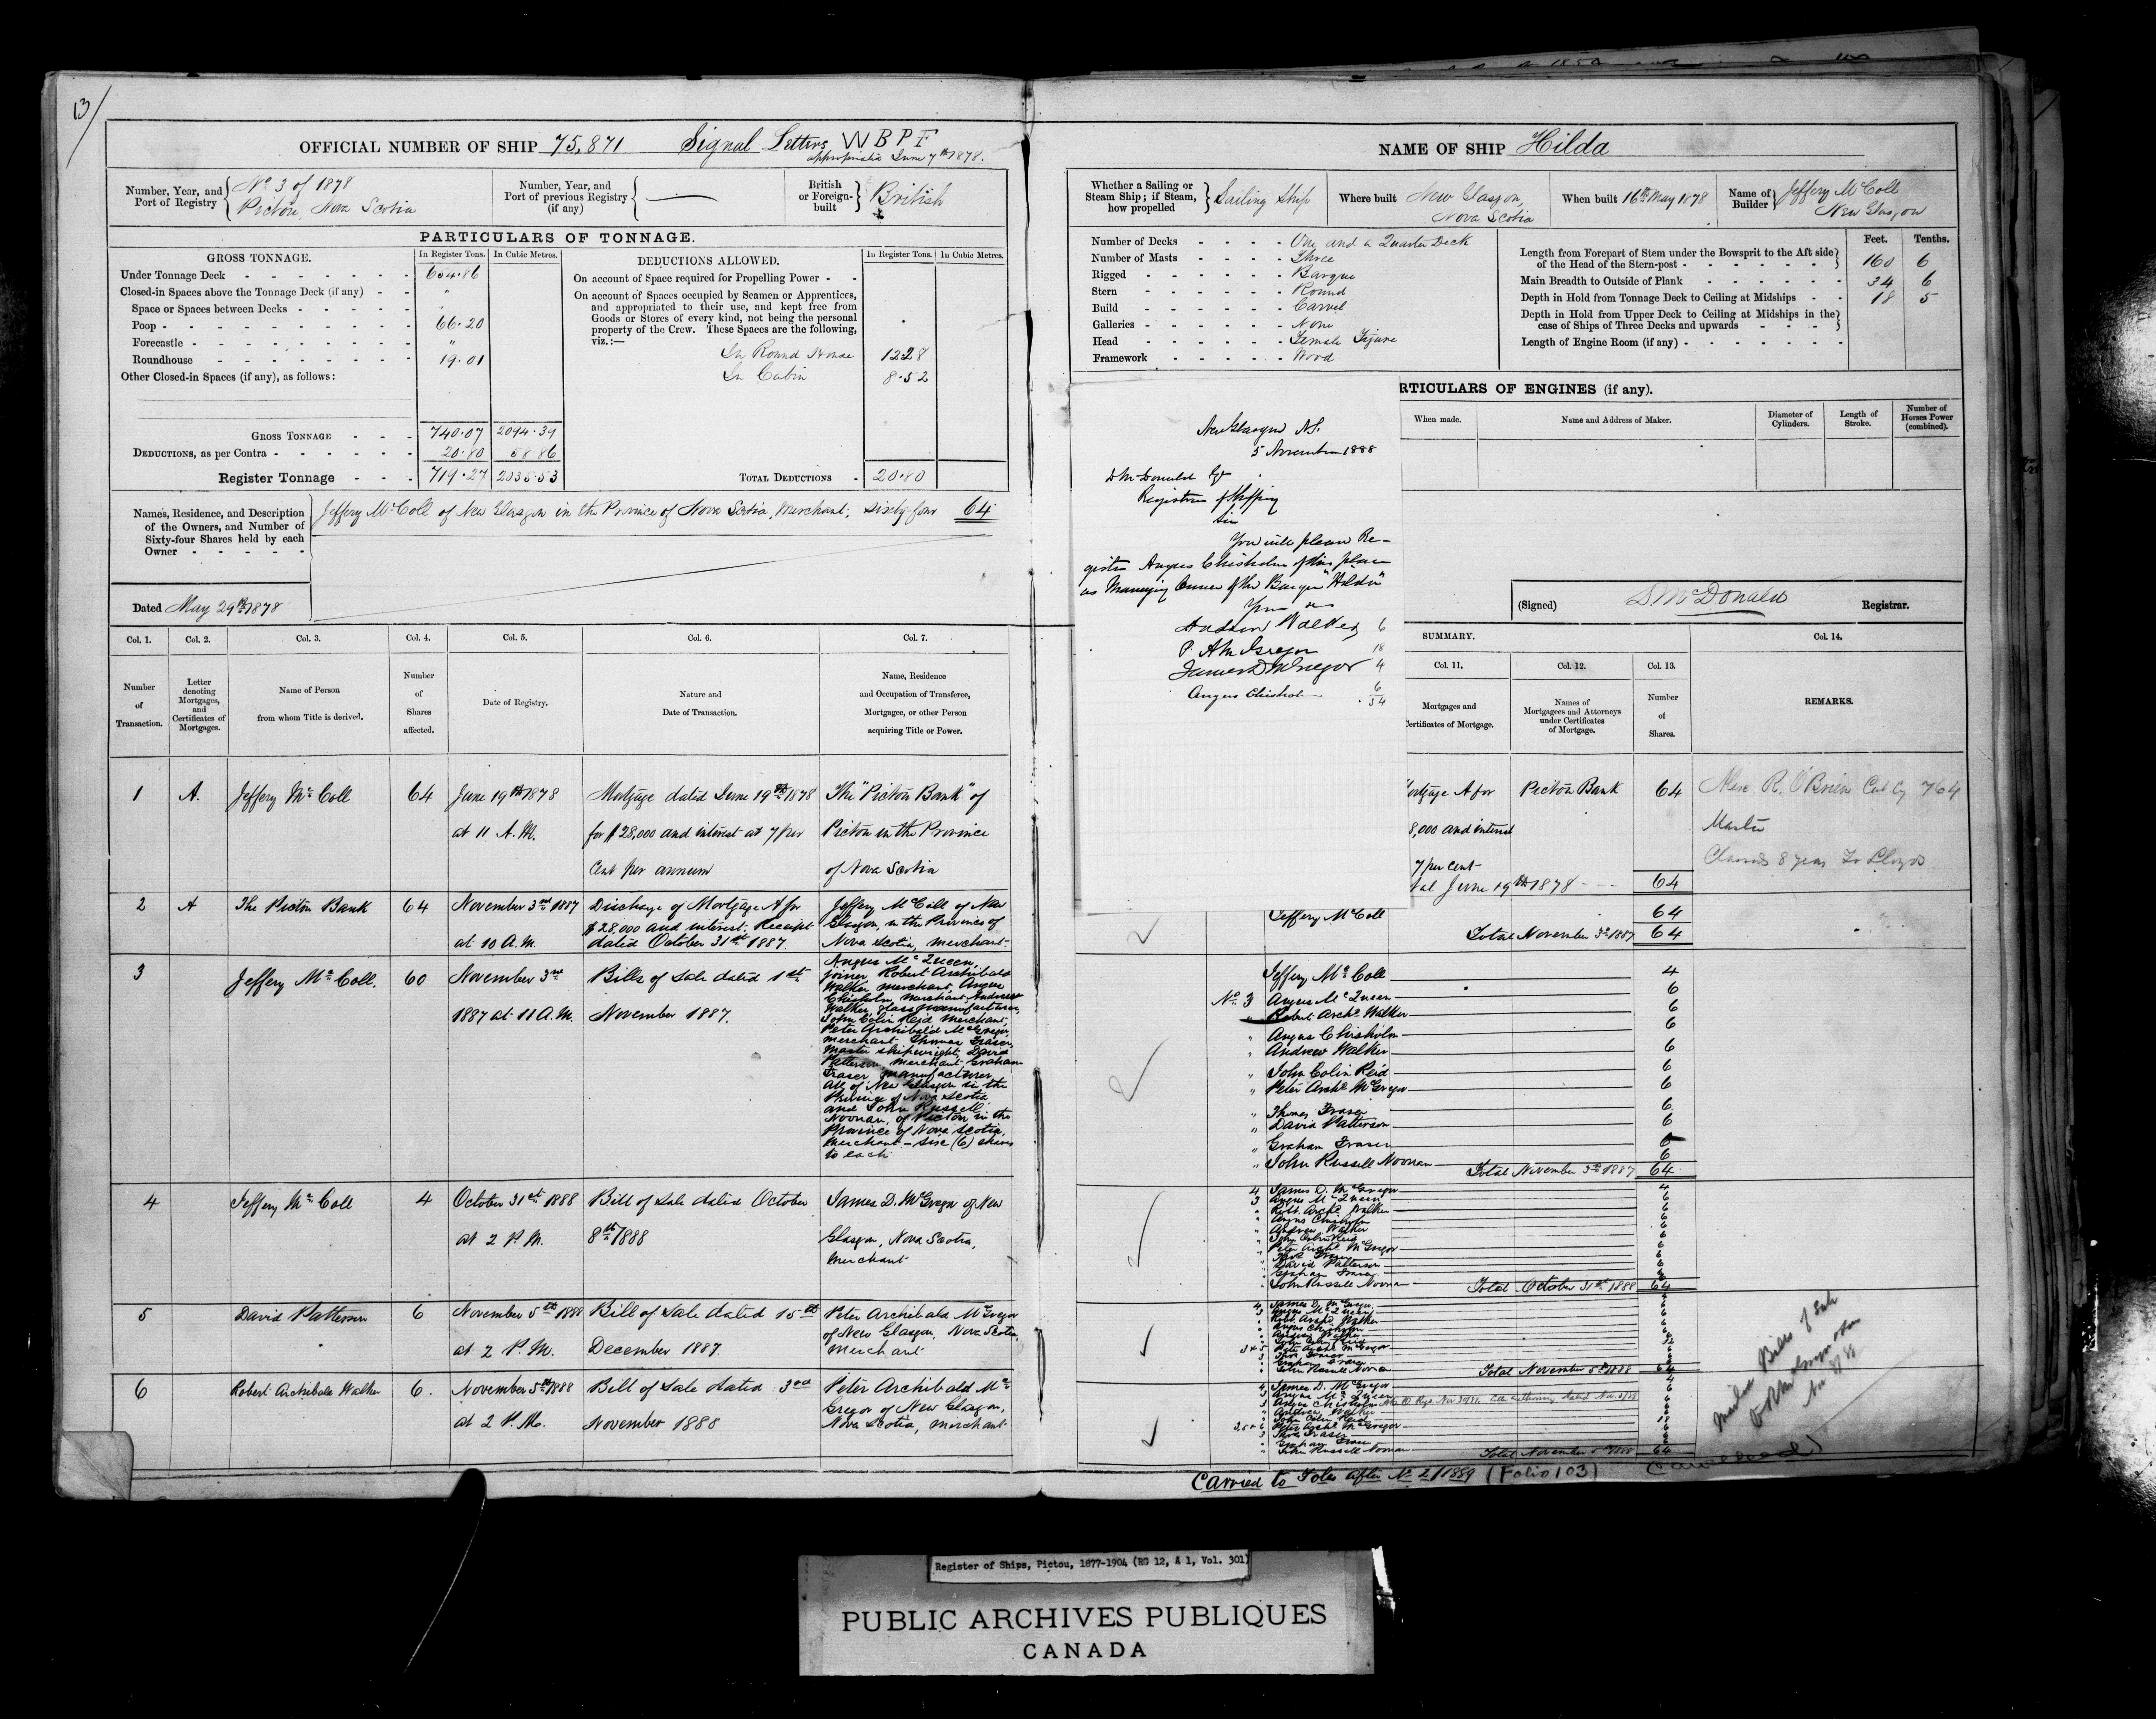 13/
OFFICIAL NUMBER OF SHIP 75,871 Signal Letters W B P F
appropriated June 7th 1878.
Number, Year, and Port of Registry
No 3 of 1878
Pictou, Nova Scotia
Number, Year, and Port of previous Registry (if any)
British or Foreign-built
British
PARTICULARS OF TONNAGE.
GROSS TONNAGE. In Register Tons. In Cubic Metres.
Under Tonnage Deck 654.86
Closed-in Spaces above the Tonnage Deck (if any) "
Space or Spaces between Decks
Poop 66.20
Forecastle "
Roundhouse 19.01
Other Closed-in Spaces (if any), as follows:
GROSS TONNAGE 740.07 2094.39
DEDUCTIONS, as per Contra 20.80 58.86
Register Tonnage 719.27 2035.53
DEDUCTIONS ALLOWED. In Register Tons. In Cubic Metres.
On account of Space required for Propelling Power
On account of Spaces occupied by Seamen or Apprentices,
and appropriated to their use, and kept free from
Goods or Stores of every kind, not being the personal
property of the Crew. These Spaces are the following,
viz.:—
In Round House 12.28
In Cabin 8.52
TOTAL DEDUCTIONS 20.80
Names, Residence, and Description
of the Owners, and Number of
Sixty-four Shares held by each
Owner
Jeffery McColl of New Glasgow in the Province of Nova Scotia, Merchant, Sixty-four 64
Dated May 29th 1878
Col. 1. Col. 2. Col. 3. Col. 4. Col. 5. Col. 6. Col. 7.
Number of Transaction.
Letter denoting Mortgages, and Certificates of Mortgages.
Name of Person from whom Title is derived.
Number of Shares affected.
Date of Registry.
Nature and Date of Transaction.
Name, Residence and Occupation of Transferee, Mortgagee, or other Person acquiring Title or Power.
1 A. Jeffery McColl 64 June 19th 1878 Mortgage dated June 19th 1878 The "Pictou Bank" of
at 11 A.M. for $28,000 and interest at 7 per Pictou in the Province
Cent per annum of Nova Scotia
2 A The Pictou Bank 64 November 3rd 1887 Discharge of Mortgage A for Jeffery McColl of New
$28,000 and interest. Receipt Glasgow, in the Province of
at 10 A.M. dated October 31st 1887. Nova Scotia, merchant
3 Jeffery McColl. 60 November 3rd Bills of Sale dated 1st
1887 at 11 A.M. November 1887.
Angus McQueen,
joiner Robert Archibald
Walker merchant, Angus
Chisholm, merchant Andrew
Walker, glass manufacturer,
John Colin Reid Merchant,
Peter Archibald McGregor,
merchant Thomas Fraser,
Master shipwright, David
Patterson merchant Graham
Fraser manufacturer
all of New Glasgow in the
Province of Nova Scotia,
and John Russell
Noonan, of Pictou in the
Province of Nova Scotia,
merchant – six (6) shares
to each
4 Jeffery McColl 4 October 31st 1888 Bill of Sale dated October James D. McGregor of New
at 2 P.M. 8th 1888 Glasgow, Nova Scotia,
merchant
5 David Patterson 6 November 5th 1888 Bill of Sale dated 15th Peter Archibald McGregor
of New Glasgow, Nova Scotia,
at 2 P.M. December 1887 merchant
6 Robert Archibald Walker 6. November 5th 1888 Bill of Sale dated 3rd Peter Archibald Mc
Gregor of New Glasgow,
at 2 P.M. November 1888 Nova Scotia, merchant
NAME OF SHIP Hilda
Whether a Sailing or Steam Ship; if Steam, how propelled
Sailing Ship
Where built New Glasgow,
Nova Scotia
When built 16th May 1878
Name of Builder
Jeffery McColl
New Glasgow
Number of Decks One and a Quarter Deck
Number of Masts Three
Rigged Barque
Stern Round
Build Carvel
Galleries None
Head Female Figure
Framework Wood
Feet. Tenths.
Length from Forepart of Stem under the Bowsprit to the Aft side
of the Head of the Stern-post 160 6
Main Breadth to Outside of Plank 34 6
Depth in Hold from Tonnage Deck to Ceiling at Midships 18 5
Depth in Hold from Upper Deck to Ceiling at Midships in the
case of Ships of Three Decks and upwards
Length of Engine Room (if any)
RTICULARS OF ENGINES (if any).
When made. Name and Address of Maker. Diameter of Cylinders. Length of Stroke. Number of Horses Power (combined).
New Glasgow N.S.
5 November 1888
D McDonald Esq
Registrar of Shipping
Sir
You will please Re-
gister Angus Chisholm of this place
as Managing Owner of the Barque "Hilda"
Andrew Walker 6
P. A McGregor 18
James D McGregor 4
Angus Chisholm 6
34
(Signed) D. McDonald Registrar.
SUMMARY.
Col. 11. Col. 12. Col. 13. Col. 14.
Mortgages and Certificates of Mortgage.
Names of Mortgagees and Attorneys under Certificates of Mortgage.
Number of Shares.
REMARKS.
Mortgage A for Pictou Bank 64
8,000 and interest
7 per cent
tal June 19th 1878 64
Alex R. O'Brien 764
Master
Classed 8 years Lloyds
2 Jeffery McColl 64
Total November 3rd 1887 64
Jeffery McColl 4
No 3 Angus McQueen 6
" Robert Archd Walker 6
" Angus Chisholm 6
" Andrew Walker 6
" John Colin Reid 6
" Peter Archd McGregor 6
" Thomas Fraser 6
" David Patterson 6
" Graham Fraser 6
" John Russell Noonan 6
Total November 3rd 1887 64
4 James D. McGregor 4
3 Angus McQueen 6
" Robt. Archd. Walker 6
" Angus Chisholm 6
" Andrew Walker 6
" John Colin Reid 6
" Peter Archd McGregor 6
" Thos Fraser 6
" David Patterson 6
" Graham Fraser 6
" John Russell Noonan 6
Total October 31st 1888 64
4 James D. McGregor 4
3 Angus McQueen 6
" Robt. Archd. Walker 6
" Angus Chisholm 6
" Andrew Walker 6
" John Colin Reid 6
3 & 5 Peter Archd McGregor 12
3 Thos Fraser 6
" Graham Fraser 6
" John Russell Noonan 6
Total November 5th 1888 64
4 James D. McGregor 4
3 Angus McQueen 6
3 Angus Chisholm 6
" Andrew Walker 6
" John Colin Reid 6
3, 5 & 6 Peter Archd McGregor 18
3 Thos Fraser 6
" Graham Fraser 6
" John Russell Noonan 6
Total November 5th 1888 64
Carried to Folio after No 2/1889 (Folio 103)
Cancelled
Register of Ships, Pictou, 1877-1904 (RG 12, A 1, Vol. 301)
PUBLIC ARCHIVES PUBLIQUES
CANADA